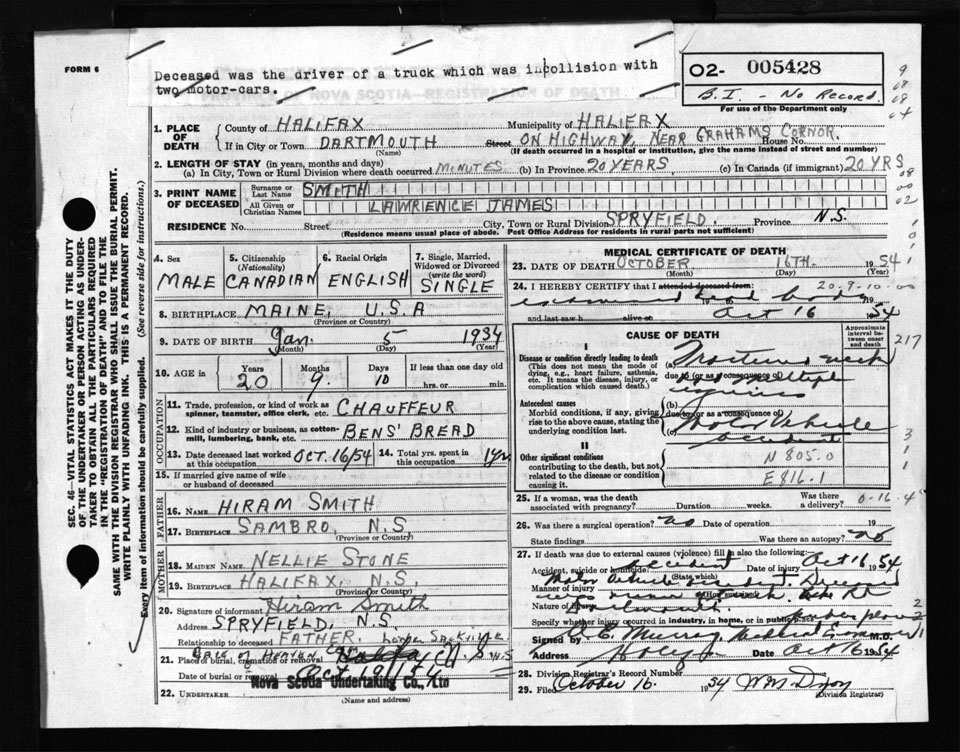 FORM 6
Deceased was the driver of a truck which was incollision with
two motor-cars.
PROVINCE OF NOVA SCOTIA—REGISTRATION OF DEATH
O2- 005428
B.I. - No Record.
For use of the Department only
1. PLACE OF DEATH
County of HALIFAX Municipality of HALIFAX
If in City or Town DARTMOUTH Street ON HIGHWAY, NEAR GRAHAMS CORNOR. House No.
(Name) (If death occurred in a hospital or institution, give the name instead of street and number)
2. LENGTH OF STAY (in years, months and days)
(a) In City, Town or Rural Division where death occurred MINUTES (b) In Province 20 YEARS (c) In Canada (if immigrant) 20 YRS
3. PRINT NAME OF DECEASED
Surname or Last Name SMITH
All Given or Christian Names LAWRENCE JAMES
RESIDENCE No. Street City, Town or Rural Division SPRYFIELD, Province N.S.
(Residence means usual place of abode. Post Office Address for residents in rural parts not sufficient)
SEC. 46—VITAL STATISTICS ACT MAKES IT THE DUTY
OF THE UNDERTAKER OR PERSON ACTING AS UNDER-
TAKER TO OBTAIN ALL THE PARTICULARS REQUIRED
IN THE "REGISTRATION OF DEATH" AND TO FILE THE
SAME WITH THE DIVISION REGISTRAR WHO SHALL ISSUE THE BURIAL PERMIT.
WRITE PLAINLY WITH UNFADING INK. THIS IS A PERMANENT RECORD.
Every item of information should be carefully supplied. (See reverse side for instructions.)
4. Sex MALE
5. Citizenship (Nationality) CANADIAN
6. Racial Origin ENGLISH
7. Single, Married, Widowed or Divorced (write the word) SINGLE
8. BIRTHPLACE MAINE, U.S.A
(Province or Country)
9. DATE OF BIRTH Jan. 5 1934
(Month) (Day) (Year)
10. AGE in Years 20 Months 9 Days 10 If less than one day old
hrs. or min.
OCCUPATION
11. Trade, profession, or kind of work as spinner, teamster, office clerk, etc. CHAUFFEUR
12. Kind of industry or business, as cotton-mill, lumbering, bank, etc. BENS' BREAD
13. Date deceased last worked at this occupation OCT. 16/54
14. Total yrs. spent in this occupation 1 yr
15. If married give name of wife or husband of deceased
FATHER
16. NAME HIRAM SMITH
17. BIRTHPLACE SAMBRO, N.S
(Province or Country)
MOTHER
18. MAIDEN NAME NELLIE STONE
19. BIRTHPLACE HALIFAX, N.S,
(Province or Country)
20. Signature of informant Hiram Smith
Address SPRYFIELD, N.S.
Relationship to deceased FATHER.
21. Place of burial, cremation or removal
Date of burial or removal Oct 19/54
Nova Scotia Undertaking Co., Ltd
22. UNDERTAKER
(Name and address)
MEDICAL CERTIFICATE OF DEATH
23. DATE OF DEATH OCTOBER 16TH. 1954
(Month) (Day) (Year)
24. I HEREBY CERTIFY that I attended deceased from:
20-9-10-00
examined dead body
and last saw h alive on Oct 16 1954
CAUSE OF DEATH
Approximate interval between onset and death
I
Disease or condition directly leading to death
(This does not mean the mode of dying, e.g., heart failure, asthenia, etc. It means the disease, injury, or complication which caused death.)
(a) Fractured neck
due to (or as a consequence of)
Multiple
(b) injuries
Antecedent causes
Morbid conditions, if any, giving rise to the above cause, stating the underlying condition last.
due to (or as a consequence of)
(c) Motor Vehicle
accident
II
Other significant conditions
contributing to the death, but not related to the disease or condition causing it.
N 805.0
E816.1
217
25. If a woman, was the death associated with pregnancy? Duration weeks. Was there a delivery?
26. Was there a surgical operation? no Date of operation 19
State findings Was there an autopsy? no
27. If death was due to external causes (violence) fill in also the following:
Accident, suicide or homicide? Accident Date of injury Oct 16 1954
(State which)
Manner of injury Motor Vehicle accident. Deceased
(How sustained)
Nature of injury
Specify whether injury occurred in industry, in home, or in public place
Signed by Murray, Medical Examiner M.D.
Address Date Oct 16 1954
28. Division Registrar's Record Number
29. Filed October 16 1954
(Division Registrar)